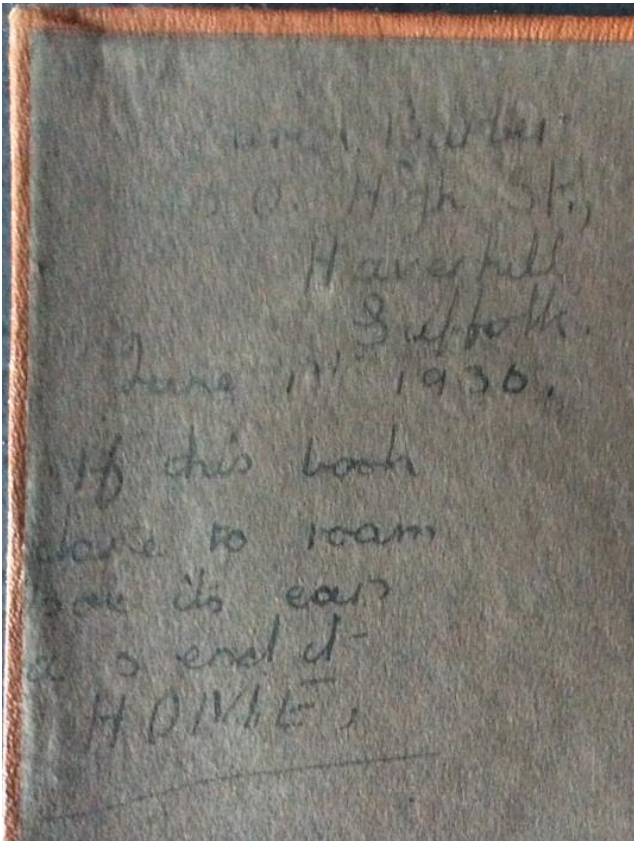 High St.,
Haverhill
Suffolk.
June 1st 1930.
If this book
dare to roam
box its ears
& send it
HOME.